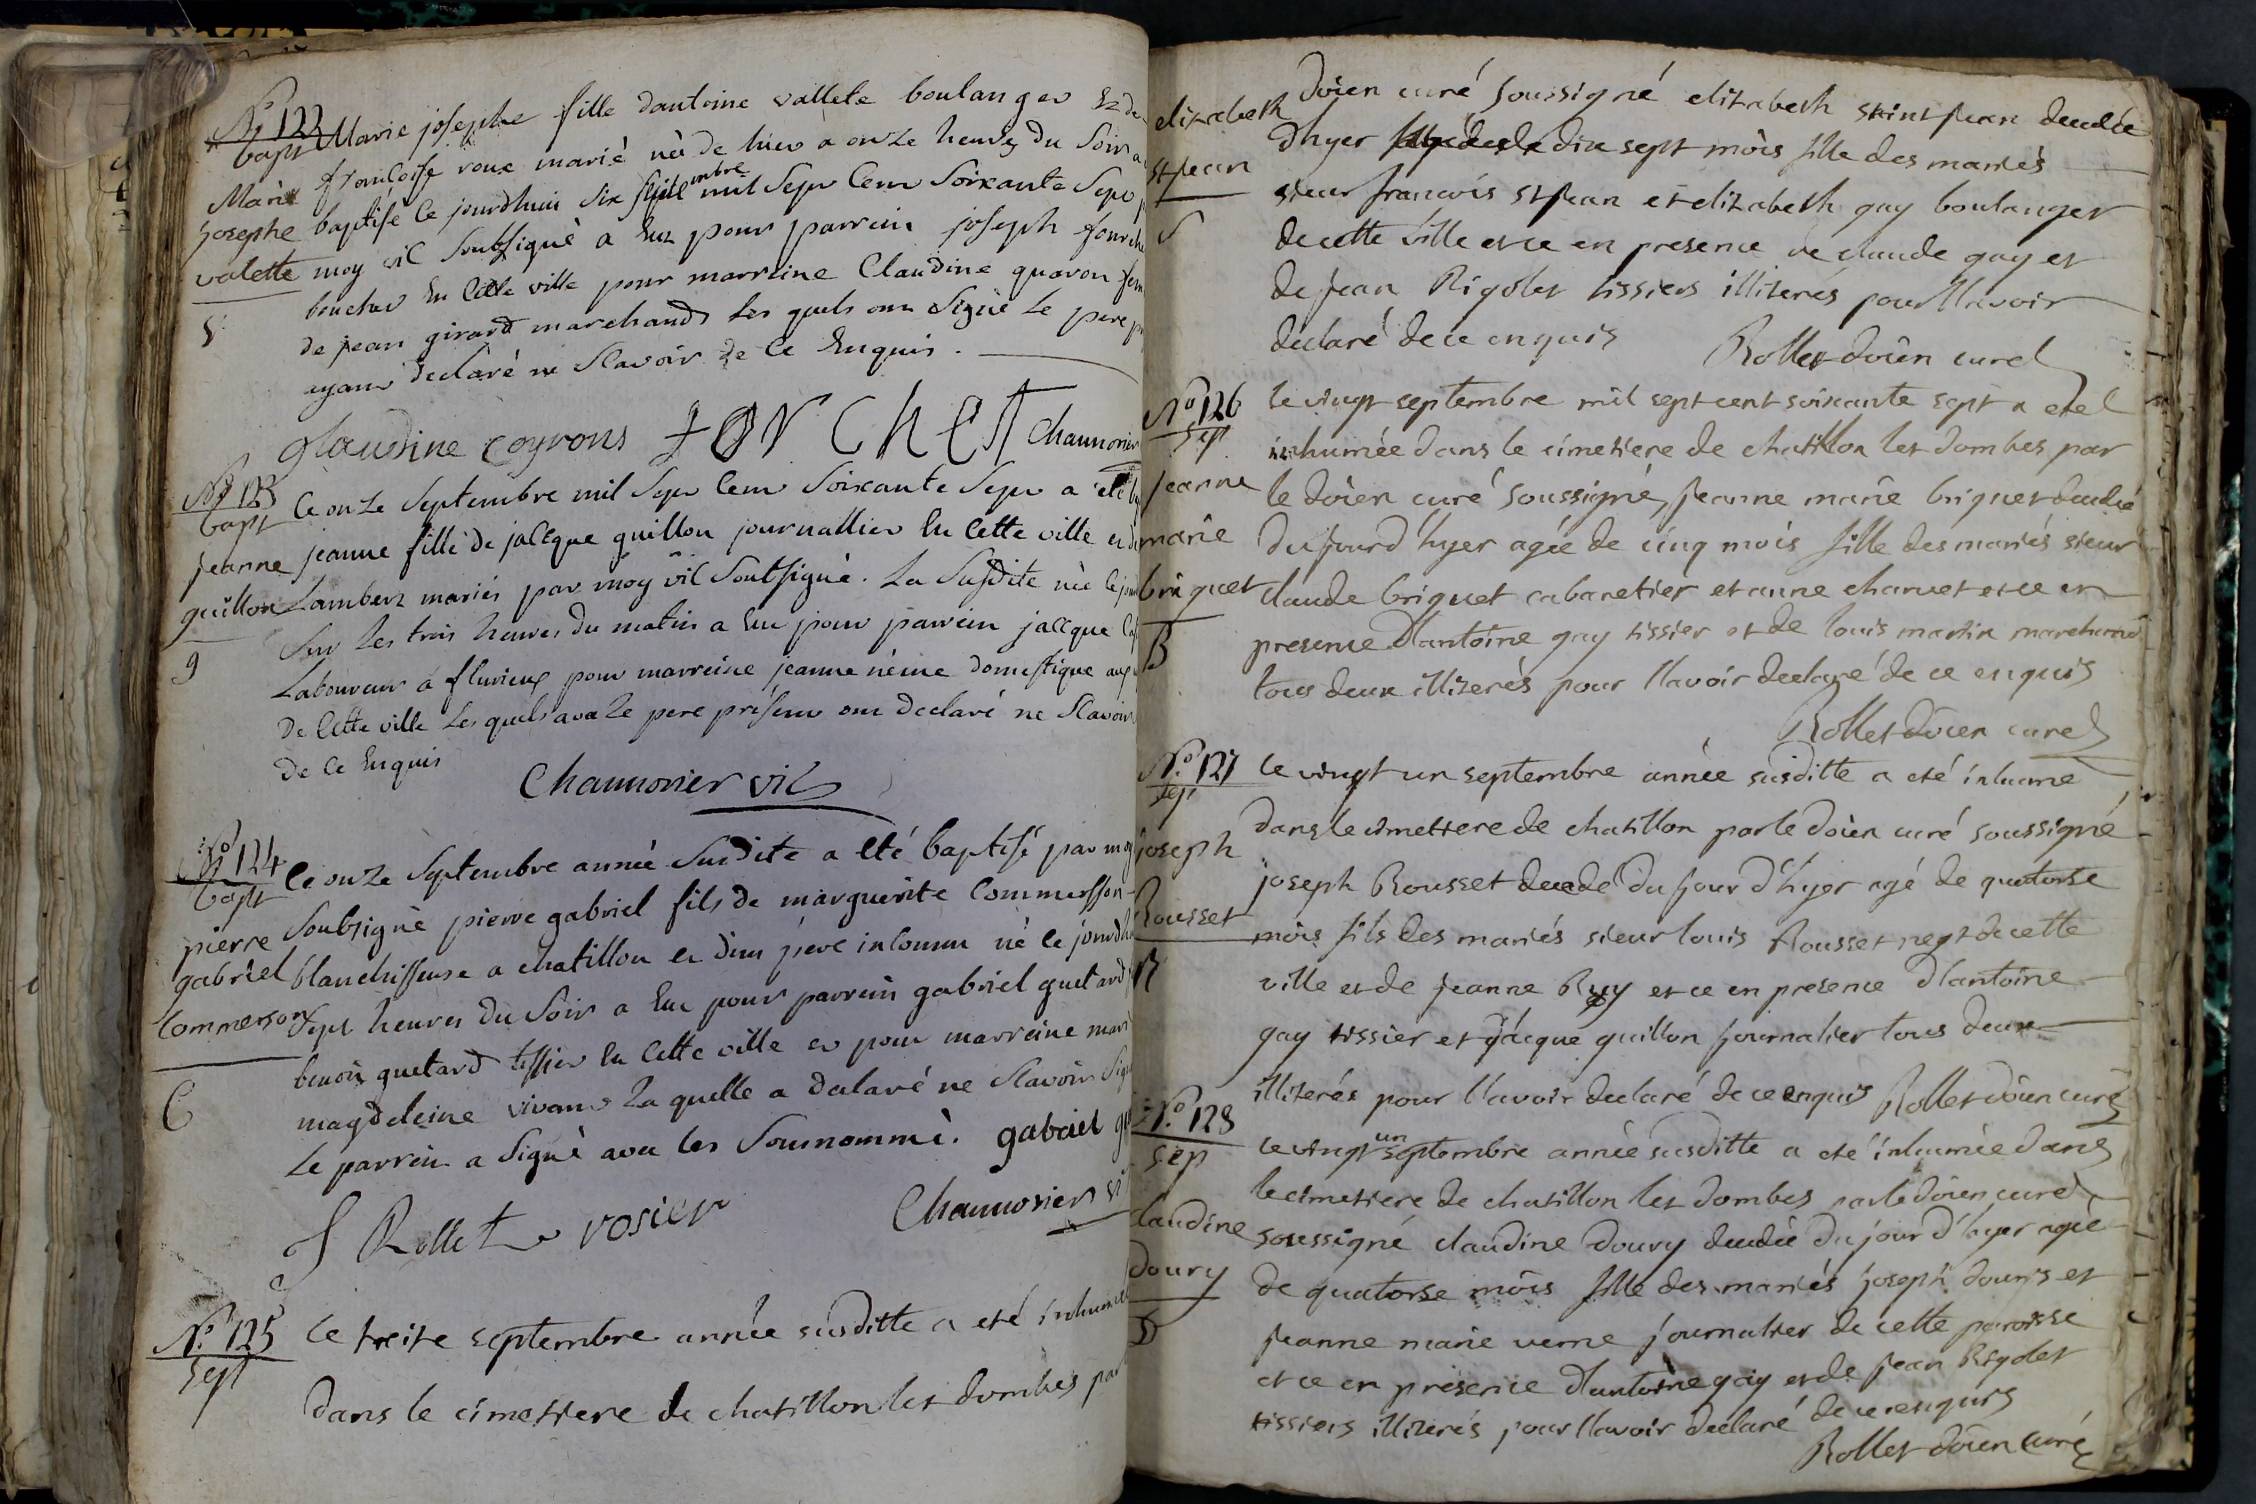 No 122
bapt
Marie
josephe
valette
V
Marie josephe fille dantoine vallete boulanger et de
francoise roux mariè nèe de hier a onze heures du Soir a
baptisé ce jourdhuy six septembre mil Sept Cent Soixante Sept
moy vic Soubsignè a Eut pour parrein joseph fourche
boucher En Cette ville pour marreine Claudine quaron fem
de jean girard marchands les quels ont Signè le pere
ayant declarè ne Scavoir de Ce Enquis.
glaudine coyrons forchet Chaumonier
No 123
bapt
jeanne
guillon
g
Ce onze Septembre mil Sept Cent Soixante Sept a eté
jeanne fille de jacque guillon journallier En Cette ville et d
Lambert mariés par moy vic Soubsignè. La Susdite née le
Sur les trois heures du matin a Eut pour parrein jacque
Laboureur a flurieux pour marreine jeanne nême domestique
de Cette ville les quels avec le pere présent ont declaré ne Scavoir
de Ce Enquis
Chaumonier vic
No 124
bapt
pierre
gabriel
Commerson
C
Ce onze Septembre année Susdite a Eté baptisé par moy
Soubsignè pierre gabriel fils de marguerite Commersson
blanchisseuse a chatillon et dun pere inconnu né le jourdh
Sept heures du Soir a Eut pour parrein gabriel guetard
benoit guetard tissier En Cette ville et pour marreine mari
magdeleine vivant la quelle a declaré ne Scavoir Sign
le parrein a Signè avec les Sousnommè. gabriel
J Rollet rosier Chaumonier vi
No 125
Sept
Ce treise septembre année susditte a eté inhumé
dans le cimetiere de chatillon les dombes par
elizabeth
st jean
S
doien curé soussigné elizabeth saint jean decedée
dhyer dix sept mois fille des mariés
sieur francois st jean et elizabeth gay boulanger
de cette ville et ce en presence de claude gay et
de jean Rigolet tissiers illiterés pour l'lavoir
declaré de ce enquis Rollet doien curé
No 126
Sept
jeanne
marie
briquet
B
le vingt septembre mil sept cent soixante sept a eté
inhumée dans le cimetiere de chatillon les dombes par
le doien curé soussigné, jeanne marie briquet decedée
du jourd'hyer agée de cinq mois fille des mariés sieur
claude briquet cabaretier et anne charvet et ce en
presence d'antoine gay tissier et de louis martin marchand
tous deux illiterés pour l'lavoir declaré de ce enquis
Rollet doien curé
No 127
Sep
joseph
Rousset
R
le vingt un septembre année susditte a eté inhumé
dans le cimetiere de chatillon par le doien curé soussigné
joseph Rousset decedé du jour d'hyer agé de quatorse
mois fils des mariés sieur louis Rousset negt de cette
ville et de jeanne Ruy et ce en presence d'antoine
gay tissier et jacque guillon journalier tous deux
illiterés pour l'lavoir declaré de ce enquis Rollet doien curé
No 128
Sep
claudine
doury
D
le vingt un septembre année susditte a eté inhumée dans
le cimetiere de chatillon les dombes par le doien curé
soussigné claudine doury decedée du jour d'hyer agée
de quatorse mois fille des mariés joseph douris et
jeanne marie verne journalier de cette paroisse
et ce en présence d'antoine gay et de jean Rigolet
tissiers illiterés pour l'lavoir declaré de ce enquis
Rollet doien curé